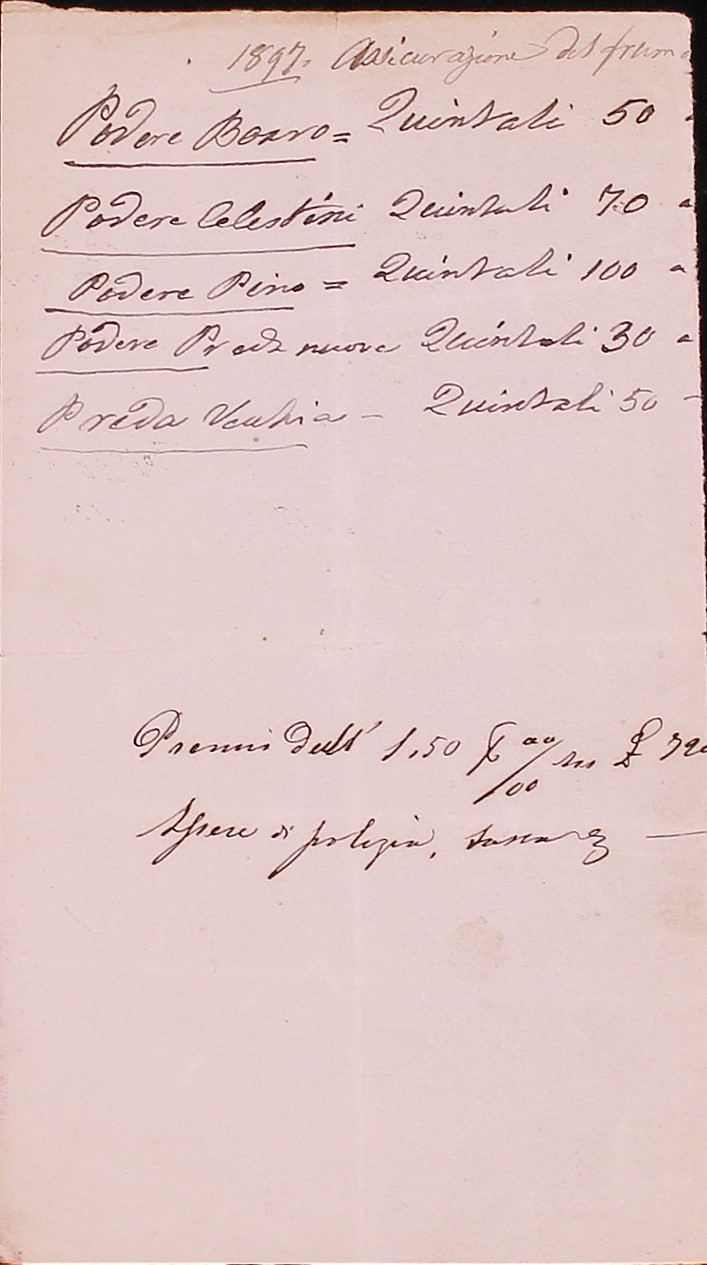 1897. Assicurazione del frum
Podere Boaro = Quintali 50 a
Podere Celestini Quintali 70 a
Podere Pino = Quintali 100 a
Podere Preda nuova Quintali 30 a
Preda Vecchia - Quintali 50 -
Premio dell' 1,50 00/00 su £ 720
Spese di polizia, tassa —